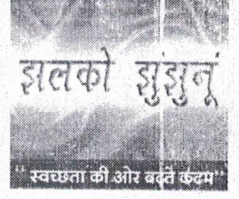 झलको झुंझुनूं
"स्वच्छता की ओर बढ़ते कदम"